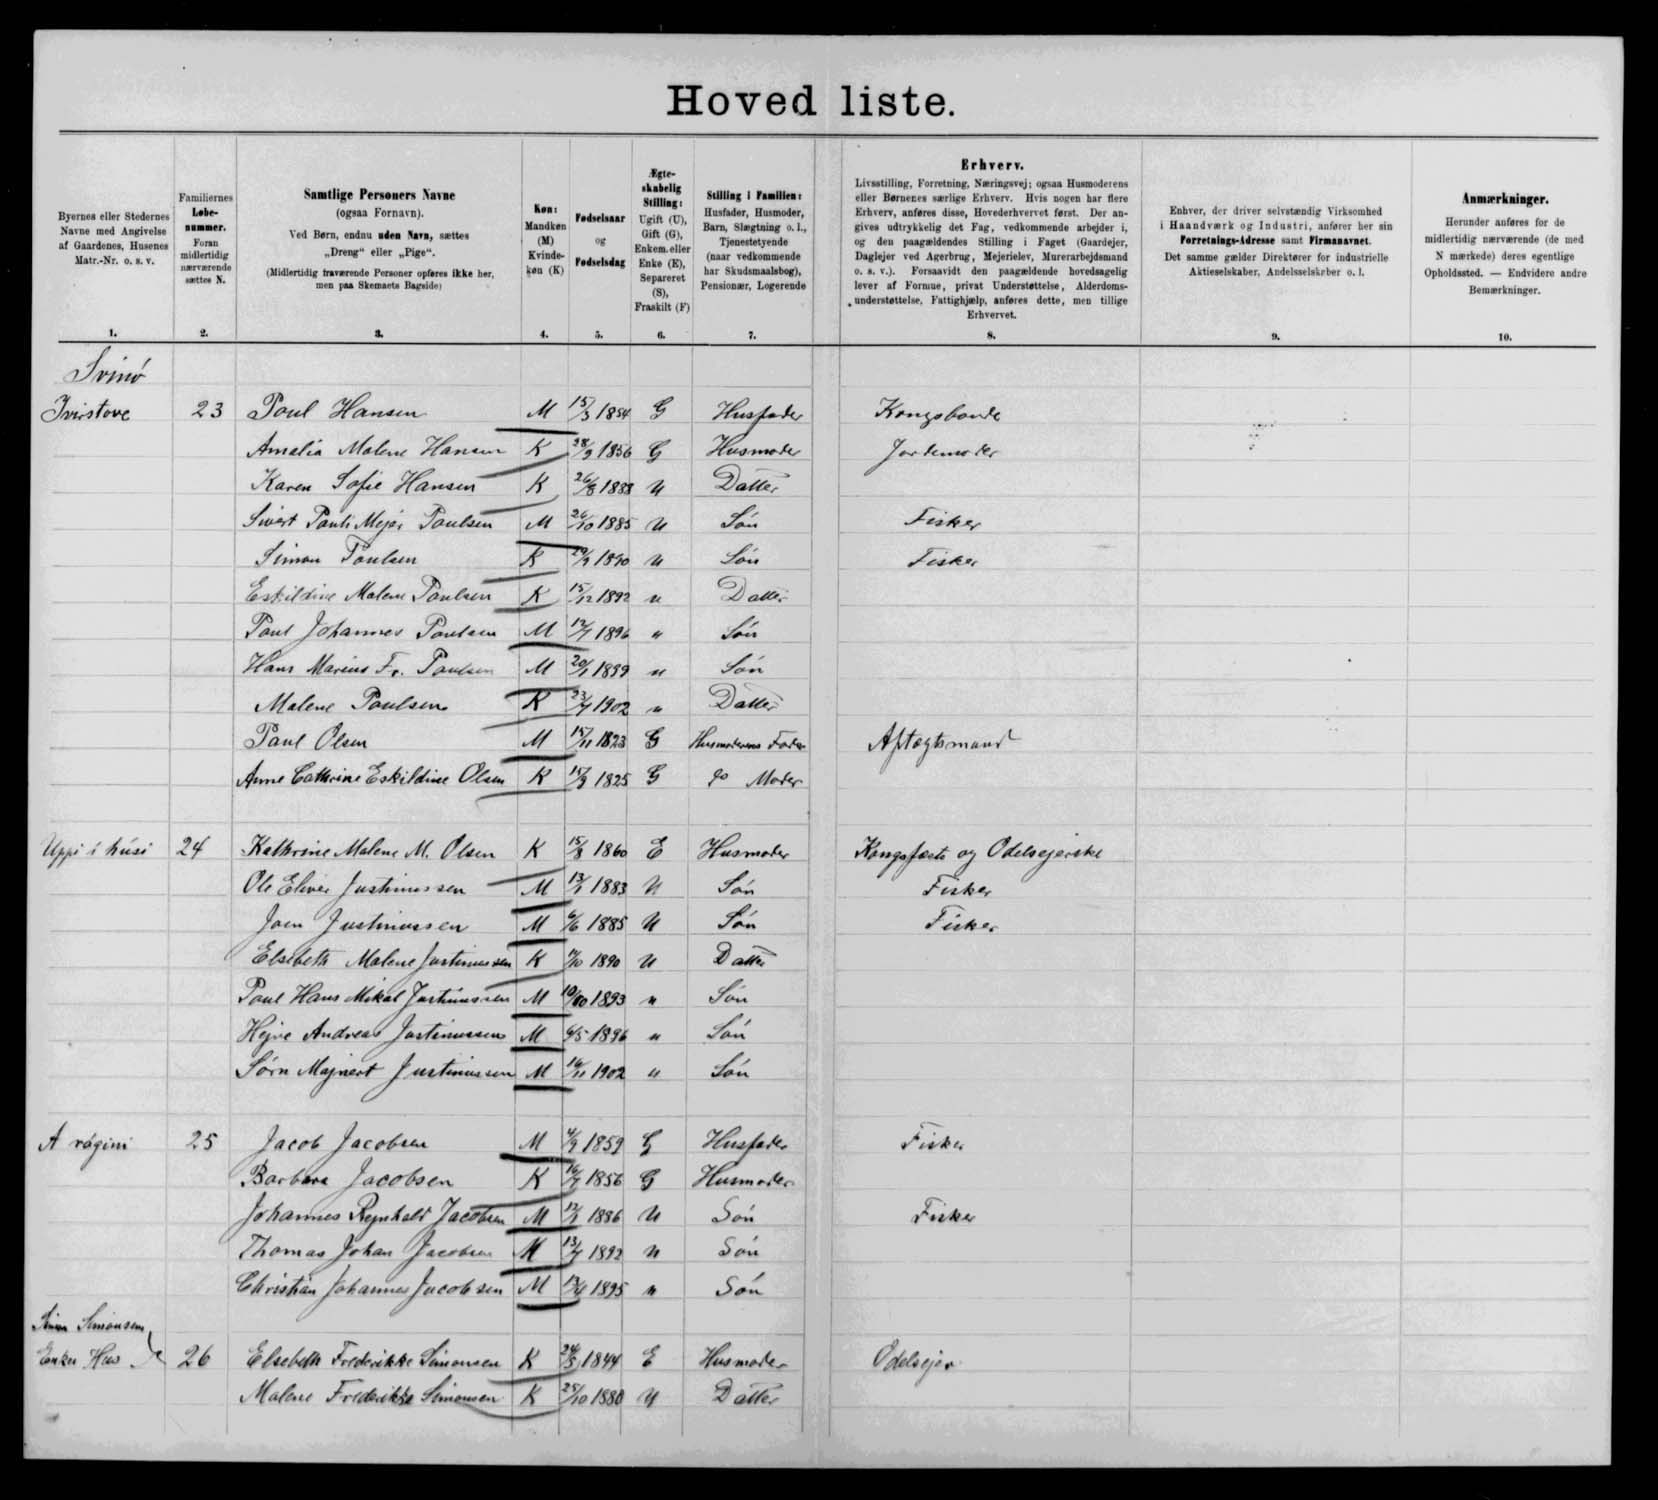 Hoved liste.
Byernes eller Stedernes
Navne med Angivelse
af Gaardenes, Husenes
Matr.-Nr. o. s. v.
1.
Familiernes
Løbe-
nummer.
Foran
midlertidig
nærværende
sættes N.
2.
Samtlige Personers Navne
(ogsaa Fornavn).
Ved Børn, endnu uden Navn, sættes
„Dreng“ eller „Pige“.
(Midlertidig fraværende Personer opføres ikke her,
men paa Skemaets Bagside)
3.
Køn:
Mandkøn
(M)
Kvinde-
køn (K)
4.
Fødselsaar
og
Fødselsdag
5.
Ægte-
skabelig
Stilling:
Ugift (U),
Gift (G),
Enkem. eller
Enke (E),
Separeret
(S),
Fraskilt (F)
6.
Stilling i Familien:
Husfader, Husmoder,
Barn, Slægtning o. l.,
Tjenestetyende
(naar vedkommende
har Skudsmaalsbog),
Pensionær, Logerende
7.
Erhverv.
Livsstilling, Forretning, Næringsvej; ogsaa Husmoderens
eller Børnenes særlige Erhverv. Hvis nogen har flere
Erhverv, anføres disse, Hovederhvervet først. Der an-
gives udtrykkelig det Fag, vedkommende arbejder i,
og den paagældendes Stilling i Faget (Gaardejer,
Daglejer ved Agerbrug, Mejerielev, Murerarbejdsmand
o. s. v.). Forsaavidt den paagældende hovedsagelig
lever af Formue, privat Understøttelse, Alderdoms-
understøttelse, Fattighjælp, anføres dette, men tillige
Erhvervet.
8.
Enhver, der driver selvstændig Virksomhed
i Haandværk og Industri, anfører her sin
Forretnings-Adresse samt Firmanavnet.
Det samme gælder Direktører for industrielle
Aktieselskaber, Andelsselskrber o. l.
9.
Anmærkninger.
Herunder anføres for de
midlertidig nærværende (de med
N mærkede) deres egentlige
Opholdssted. — Endvidere andre
Bemærkninger.
10.
Svinø
Ivirstove 23 Poul Hansen M 15/3 1854 G Husfader Kongsbonde
Amalia Malene Hansen K 28/9 1856 G Husmoder Jordemoder
Karen Sofie Hansen K 26/8 1888 U Datter
Sivert Pauli Mejer Poulsen M 26/10 1885 U Søn Fisker
Simon Poulsen K 29/9 1890 U Søn Fisker
Eskildine Malene Poulsen K 15/12 1892 u Datter
Poul Johannes Poulsen M 12/7 1896 " Søn
Hans Marius Fr. Poulsen M 20/1 1899 u Søn
Malene Poulsen K 23/7 1902 " Datter
Paul Olsen M 15/11 1823 G Husmoderens Fader Aftægtsmand
Anne Cathrine Eskildine Olsen K 15/9 1825 G do Moder
Uppi i húsi 24 Kathrine Malene M. Olsen K 15/8 1860 E Husmoder Kongsfæste og Odelsejerske
Ole Eliver Justinussen M 13/1 1883 U Søn Fisker
Joen Justinussen M 6/6 1885 U Søn Fisker
Elsebeth Malene Justinussen K /10 1890 U Datter
Poul Hans Mikal Justinussen M 10/10 1893 " Søn
Hejne Andreas Justinussen M 4/5 1896 " Søn
Sørn Majnert Justinussen M 16/11 1902 " Søn
A rógini 25 Jacob Jacobsen M 4/9 1859 G Husfader Fisker
Barbara Jacobsen K 16/7 1856 G Husmoder
Johannes Rejnhold Jacobsen M 12/1 1886 U Søn Fisker
Thomas Johan Jacobsen M 13/7 1892 U Søn
Christian Johannes Jacobsen M 1895 " Søn
Simonsens
Enkes Hus 26 Elsebeth Frederikke Simonsen K 24/5 1844 E Husmoder Odelsejer
Malene Frederikke Simonsen K 25/10 1880 U Datter